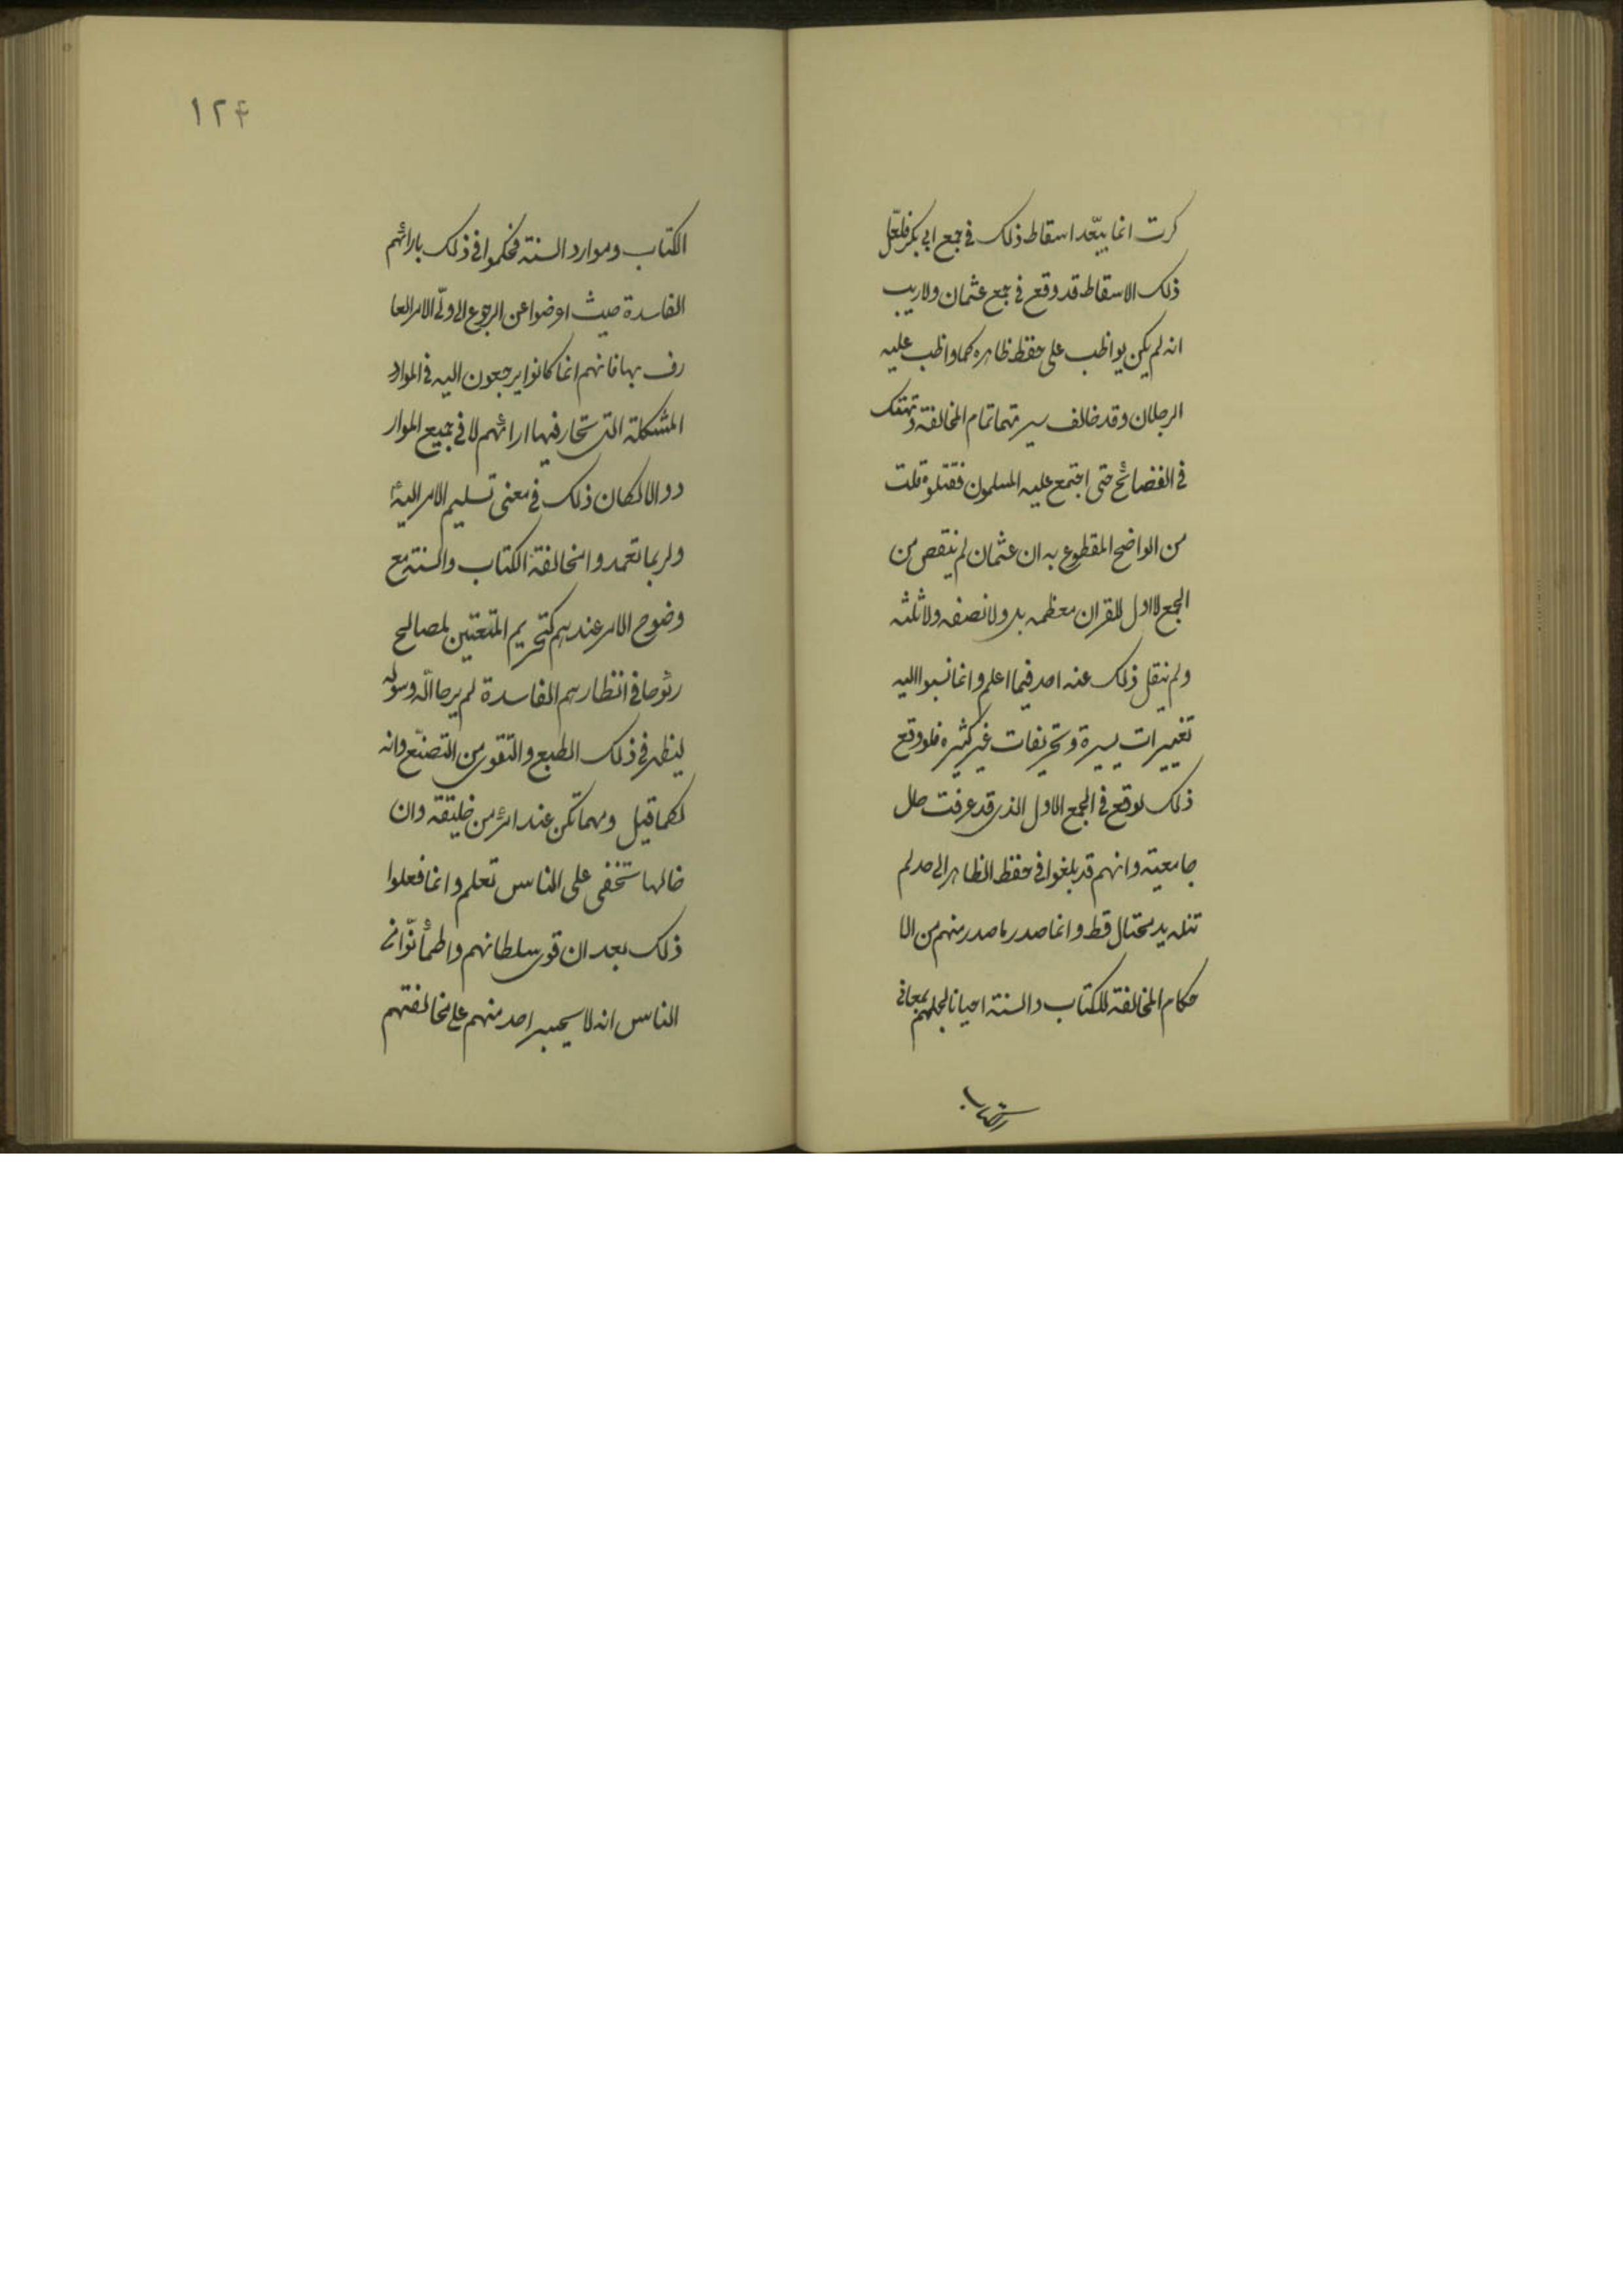 كرت انما يبعّد اسقاط ذلك في جمع ابي بكر فلعّل
ذلك الاسقاط قد وقع في جمع عثمان ولاريب
انه لم يكن يواظب على حفظ ظاهره كما واظب عليه
الرجلان وقد خالف سيرتهما تمام المخالفة وتهتك
في الفضائح حتى اجتمع عليه المسلمون فقتلوه قلت
من الواضح المقطوع به ان عثمان لم ينقص من
الجمع الاول للقران معظمه بل ولا نصفه ولا ثلثه
ولم ينقل ذلك عنه احد فيما اعلم وانما نسبوا اليه
تغييرات يسيرة وتحريفات غير كثيره فلو وقع
ذلك لوقع في الجمع الاول الذي قد عرفت حال
جامعيته وانهم قد بلغوا في حفظ الظاهر الى حد لم
تنله يد محتال قط وانما صدر ما صدر منهم من الا
حكام المخالفة للكتاب والسنة احيانا لجهلهم بمعاني
الكتاب
١٢۴
الكتاب وموارد السنة فحكموا في ذلك بارائهم
الفاسدة حيث اعرضوا عن الرجوع الى وليّ الامر العا
رف بها فانهم انما كانوا يرجعون اليه في الموارد
المشكلة التي تحار فيها ارائهم لا في جميع الموار
د والا لكان ذلك في معنى تسليم الامر اليه
ولربما تعمدوا مخالفة الكتاب والسنة مع
وضوح الامر عندهم كتحريم المتعتين لمصالح
رئوها في انظارهم الفاسدة لم يرها اللّه ورسوله
لينظر في ذلك الطبع والتقوى من التصنّع وانه
لكما قيل ومهما تكن عند امرئ من خليقة وان
خالها تخفى على الناس تعلم وانما فعلوا
ذلك بعد ان قوى سلطانهم واطمأنّوا في
الناس انه لا يجسر احد منهم على مخالفتهم